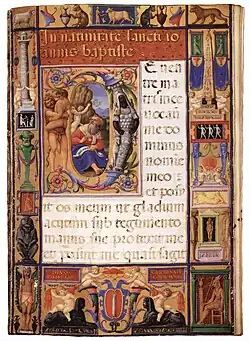 In natiuitate sancti io
annis baptiste
E uen
tre ma
tris mee
uocaui
me do
minus
nomine
meo:
et posui
it os meum ut gladium
acutum sub tegumento
manus sue protexit me
et posuit me quasi sagit